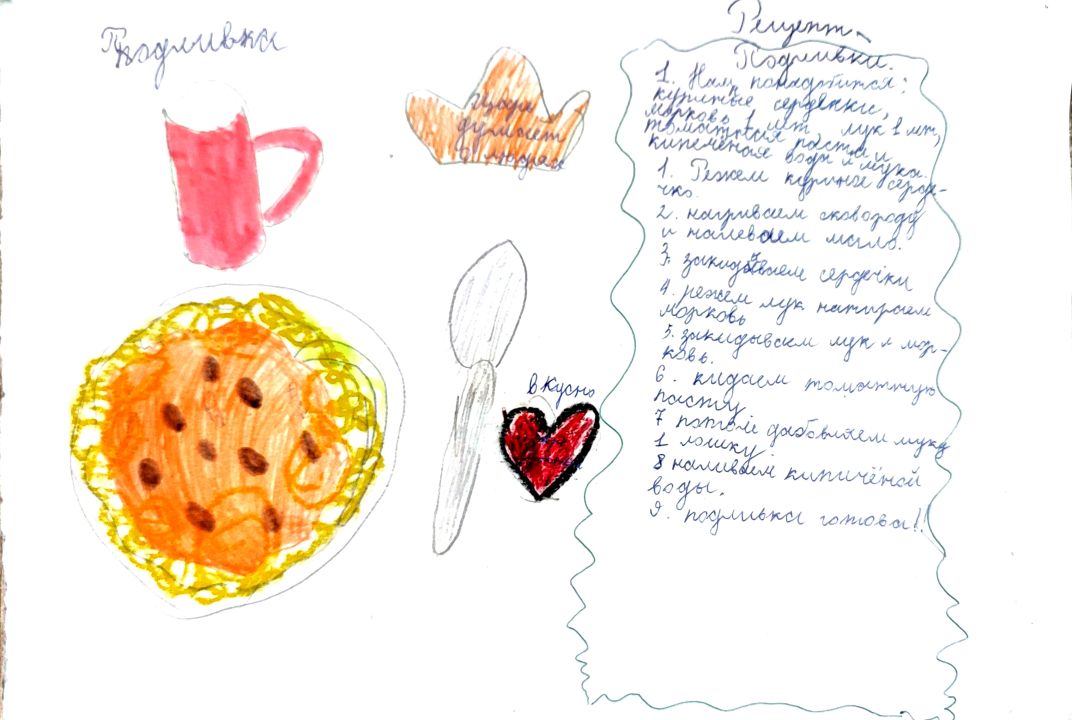 Подливка
думает
о людях
вкусно
Рецепт
Подливки.
1. Нам понадобится:
куриные сердечки,
морковь 1 шт, лук 1 шт,
томатная паста и
кипечёная вода и мука.
1. Режем куриные сердe-
чко.
2. нагриваем сковороду
и налеваем масло.
3. закидываем сердечки
4. режем лук натираем
морковь
5. закидываем лук и мор-
ковь.
6. кидаем томатную
пасту
7 потом добовляем муку
1 ложку.
8 наливаем кипичёной
воды.
9. подливка готова!!